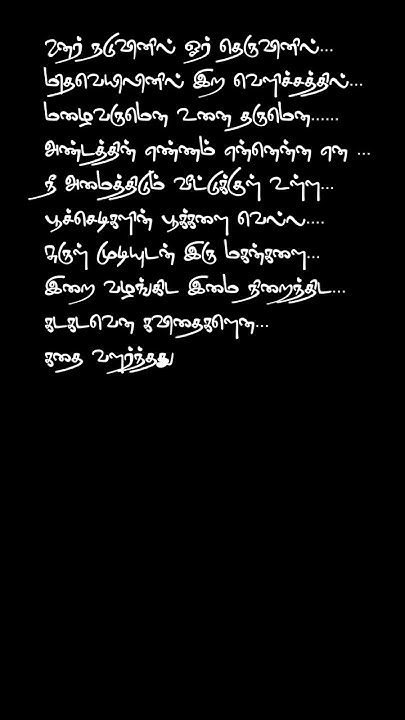 ஊர் நடுவினில் ஓர் தெருவினில்...
மிதவெயிலினில் இற வெளிச்சத்தில்...
மழைவருமென உனை தருமென......
அண்டத்தின் எண்ணம் என்னென்ன என ...
நீ அமைத்திடும் வீட்டுக்குள் உள்ள...
பூச்செடிகளின் பூக்களை வெல்ல....
சுருள் முடியுடன் இரு மகன்களை...
இறை வழங்கிட இமை நிறைந்திட...
கடகடவென கவிதைகளென...
கதை வளர்ந்தது